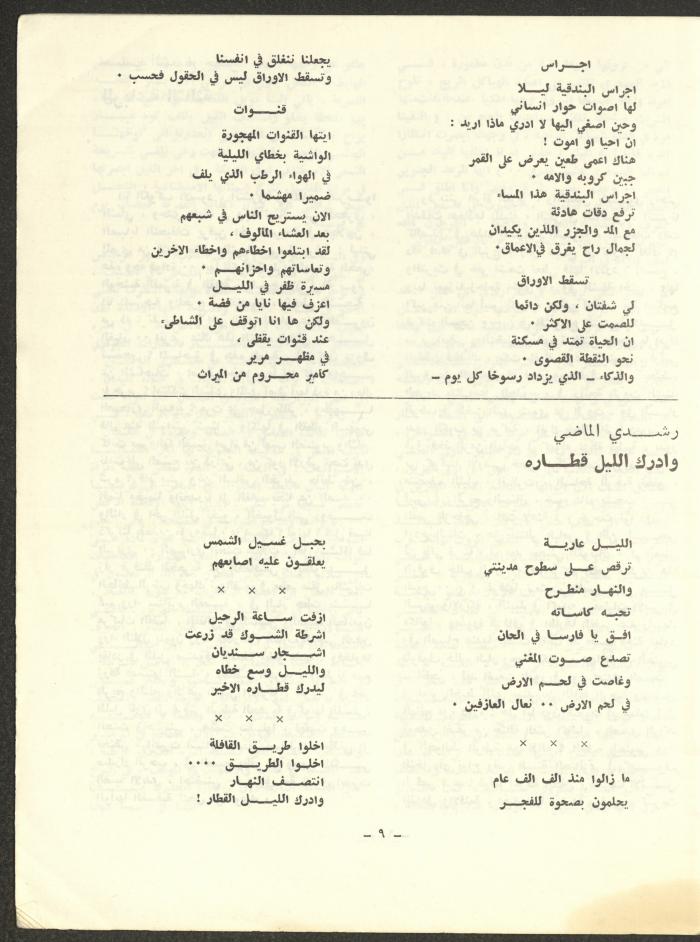 اجـــراس
اجراس البندقية ليـــلا
لها اصوات حوار انساني
وحين اصغي اليها لا ادري ماذا اريد :
ان احيا او اموت !
هناك اعمى طعين يعرض على القمر
جبين كروبه والامه ٠
اجراس البندقية هذا المساء
ترفع دقات هادئة
مع المد والجزر اللذين يكيدان
لجمال راح يغرق في الاعماق٠
تسقط الاوراق
لي شفتان ، ولكن دائما
للصمت على الاكثر ٠
ان الحياة تمتد في مسكنة
نحو النقطة القصوى ٠
والذكاء ــ الذي يزداد رسوخا كل يوم ــ
يجعلنا ننغلق في انفسنا
وتسقط الاوراق ليس في الحقول فحسب ٠
قنـــوات
ايتها القنوات المهجورة
الواشية بخطاي الليلية
في الهواء الرطب الذي يلف
ضميرا مهشما ٠
الان يستريح الناس في شبعهم
بعد العشاء المالوف ،
لقد ابتلعوا اخطاءهم واخطاء الاخرين
وتعاساتهم واحزانهـــم ٠
مسيرة ظفر في الليـــل
اعزف فيها نايا من فضة ٠
ولكن ها انا اتوقف على الشاطىء
عند قنوات يقظى ،
في مظهـــر مرير
كامير محـــروم من الميراث
رشـــدي الماضي
وادرك الليل قطـــاره
الليـــل عاريـة
ترقص عـــلى سطوح مدينتي
والنهار منطـرح
تحبه كاساته
افـق يا فارسـا في الحان
تصدع صـــوت المغني
وغاصت في لحـــم الارض
في لحم الارض ٠٠ نعال العازفين ٠
× × ×
ما زالوا منذ الف الف عام
يحلمون بصحوة للفجـــر
بحبـل غسيـل الشمس
يعلقـون عليه اصابعهم
× × ×
ازفت ســـاعة الرحيل
اشرطة الشـــوك قد زرعت
اشـــجار ســـنديان
والليـــل وسع خطاه
ليدرك قطـــاره الاخير
× × ×
اخلوا طريـــق القافلة
اخلـــوا الطريـــق ٠٠٠٠
انتصـــف النهار
وادرك الليـــل القطار !
ــ ٩ ــ